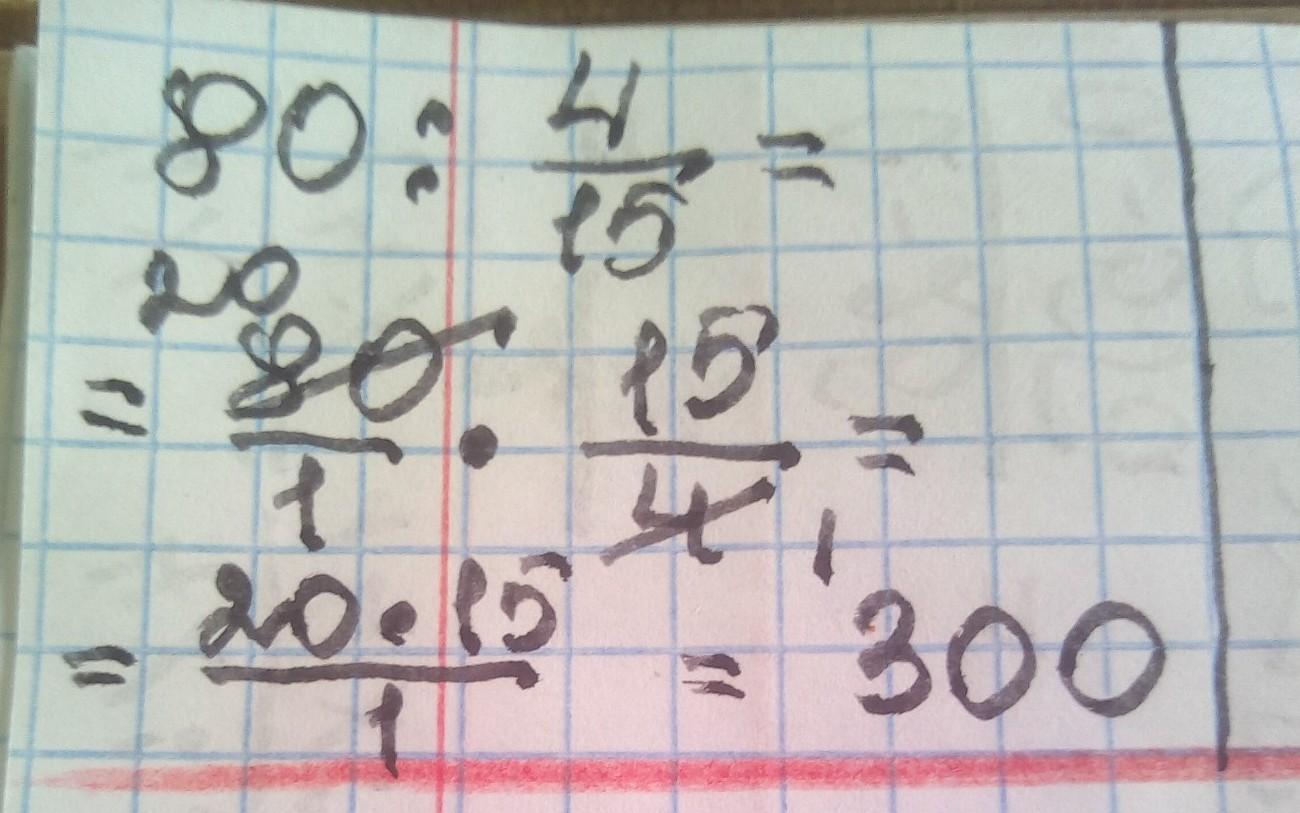 80 : 4/15 =
= 20 80/1 · 15/4 1 =
= 20·15/1 = 300